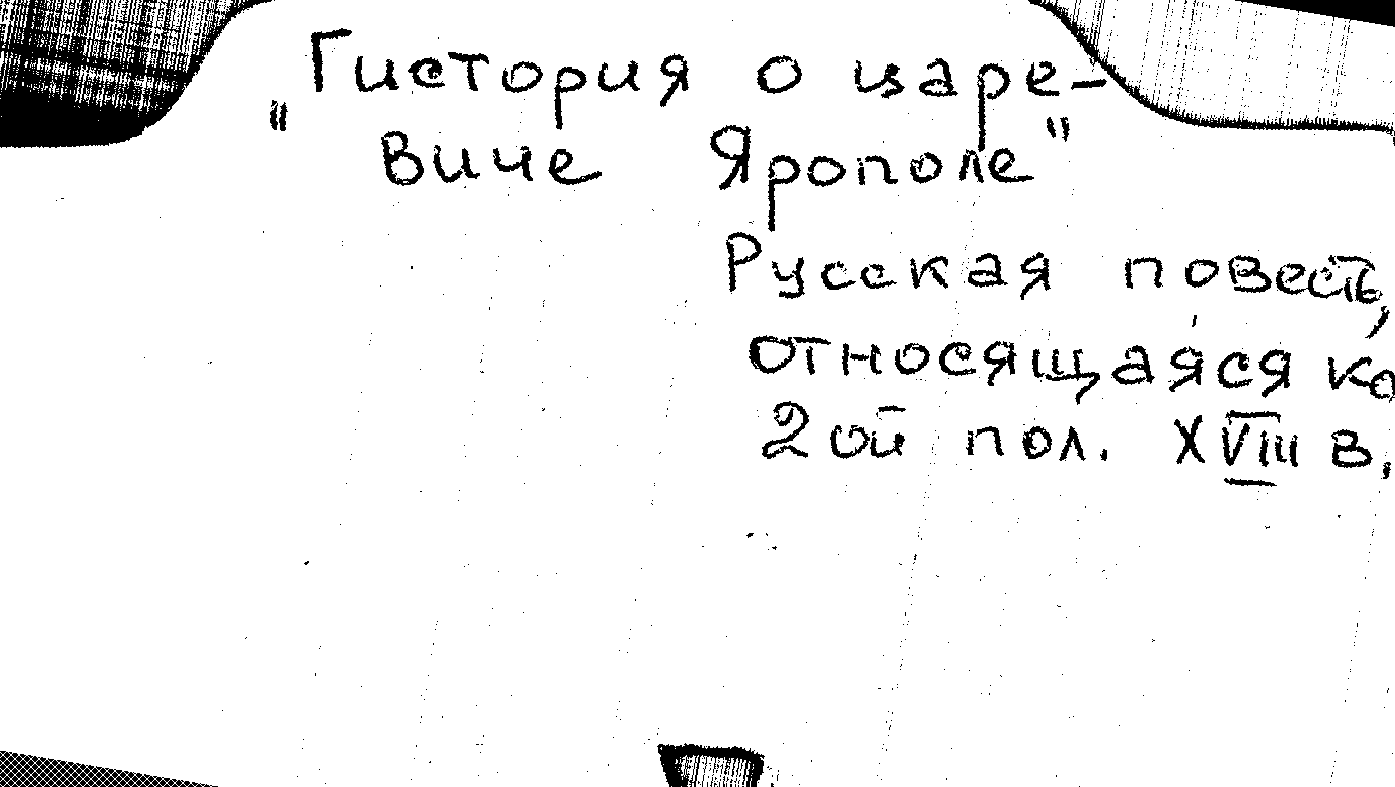 "Гистория о царе-
виче Ярополе"
Русская повесть,
относящаяся ко
2ой пол. XVIII в.